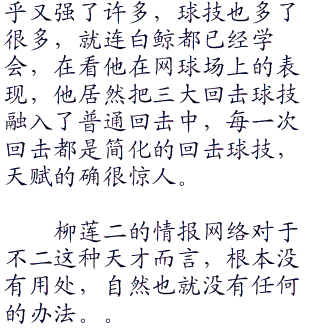 乎又强了许多，球技也多了
很多，就连白鲸都已经学
会，在看他在网球场上的表
现，他居然把三大回击球技
融入了普通回击中，每一次
回击都是简化的回击球技，
天赋的确很惊人。
柳莲二的情报网络对于
不二这种天才而言，根本没
有用处，自然也就没有任何
的办法。。